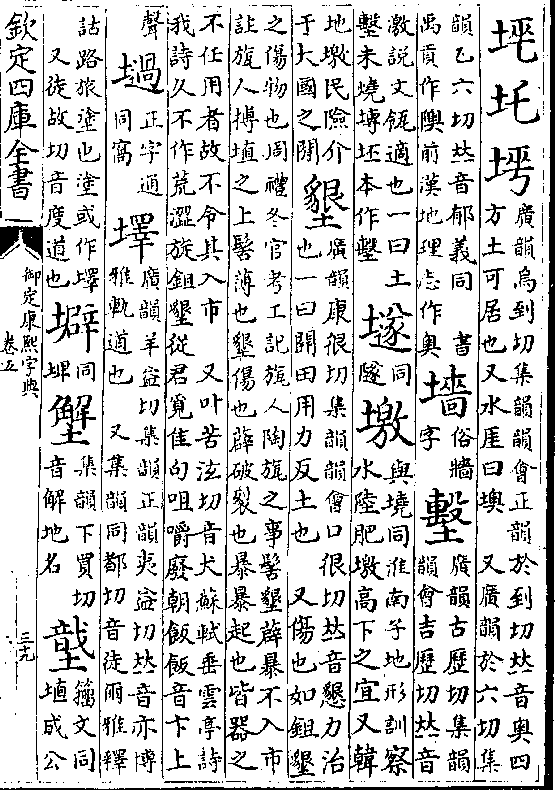 圫垮
廣韻烏到切集韻韻會正韻於到切𠀤音奥四
方土可居也又水厓曰墺 又廣韻於六切集
韻乙六切𠀤音郁義同 書
禹貢作隩前漢地理志作奥
墻
俗牆
字
墼
廣韻古歷切集韻
韻會吉歷切𠀤音
激說文瓴適也一曰土
墼未燒塼坯本作墼
同
隧
墽
與墝同淮南子地形訓察
水陸肥墽高下之宜又韓
地墽民險介
于大國之閒
墾
廣韻康很切集韻韻會口很切𠀤音懇力治
也一曰開田用力反土也 又傷也如鉏墾
之傷物也周禮冬官考工記旊人陶旊之事髺墾薜暴不入市
註旊人搏埴之上髺薄也墾傷也薜破裂也暴暴起也皆器之
不任用者故不令其入市 又叶苦泫切音犬蘇軾垂雲亭詩
我詩久不作荒澀旋鉏墾從君覓佳句咀嚼廢朝飯飯音卞上
聲
正字通
同窩
墿
廣韻羊益切集韻正韻夷益切𠀤音亦博
雅軌道也 又集韻同都切音徒爾雅釋
詁路旅塗也塗或作墿
又徒故切音度道也
壀
同
埤
集韻下買切
音解地名
籀文同
埴成公
欽定四庫全書
御定康熙字典
卷五
三十九